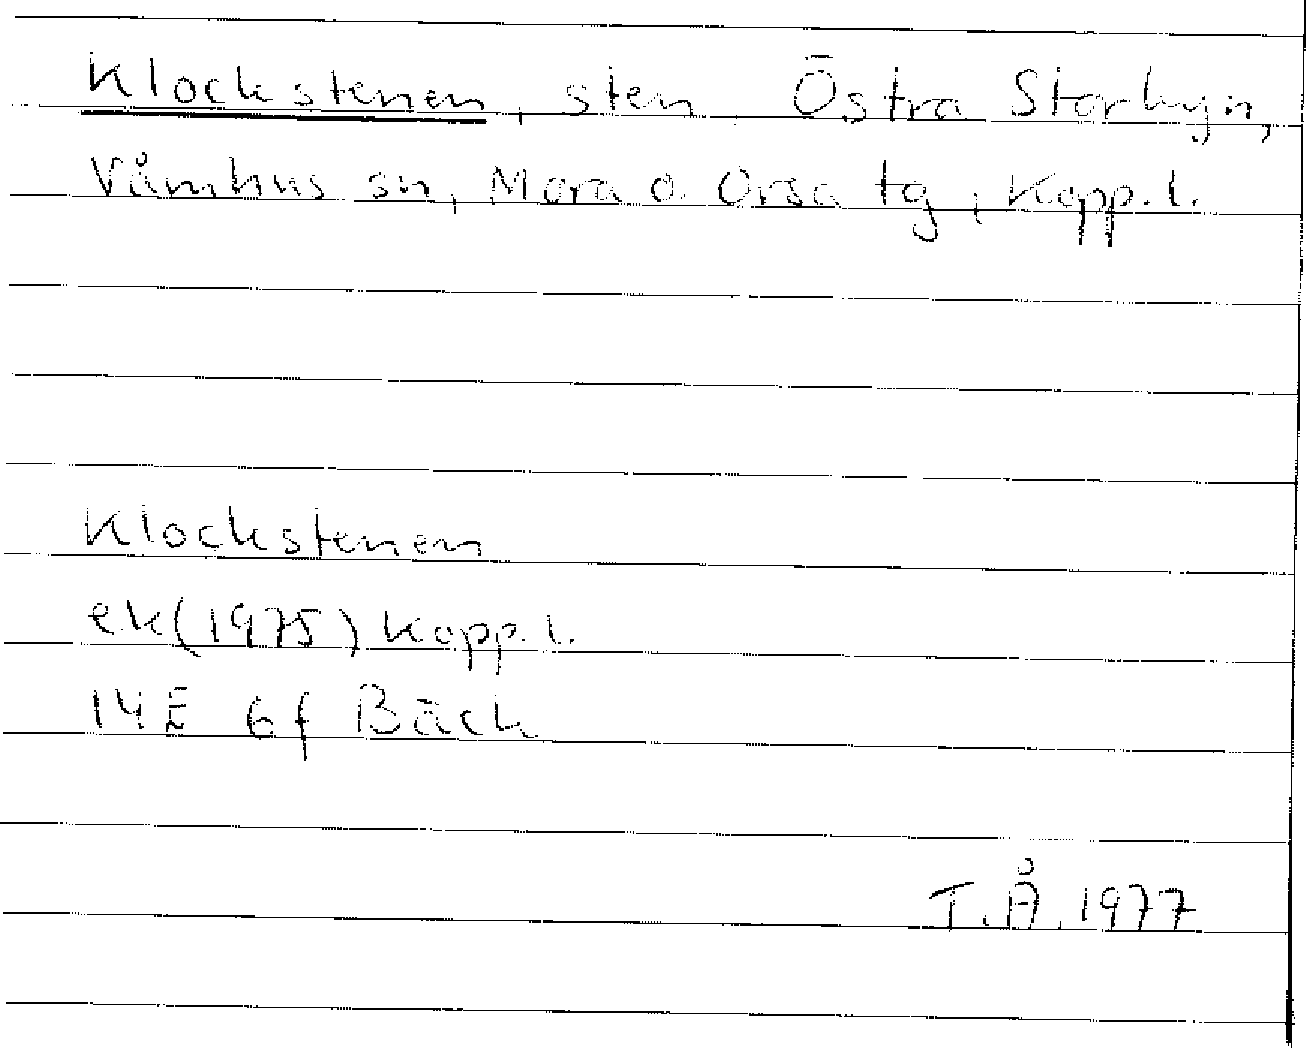 Klockstenen, sten Östra Storbyn,
Våmhus sn, Mora o. Orsa tg, Kopp. l.
Klockstenen
ek (1975) Kopp. l.
14E 6f Bäck
T.Å. 1977